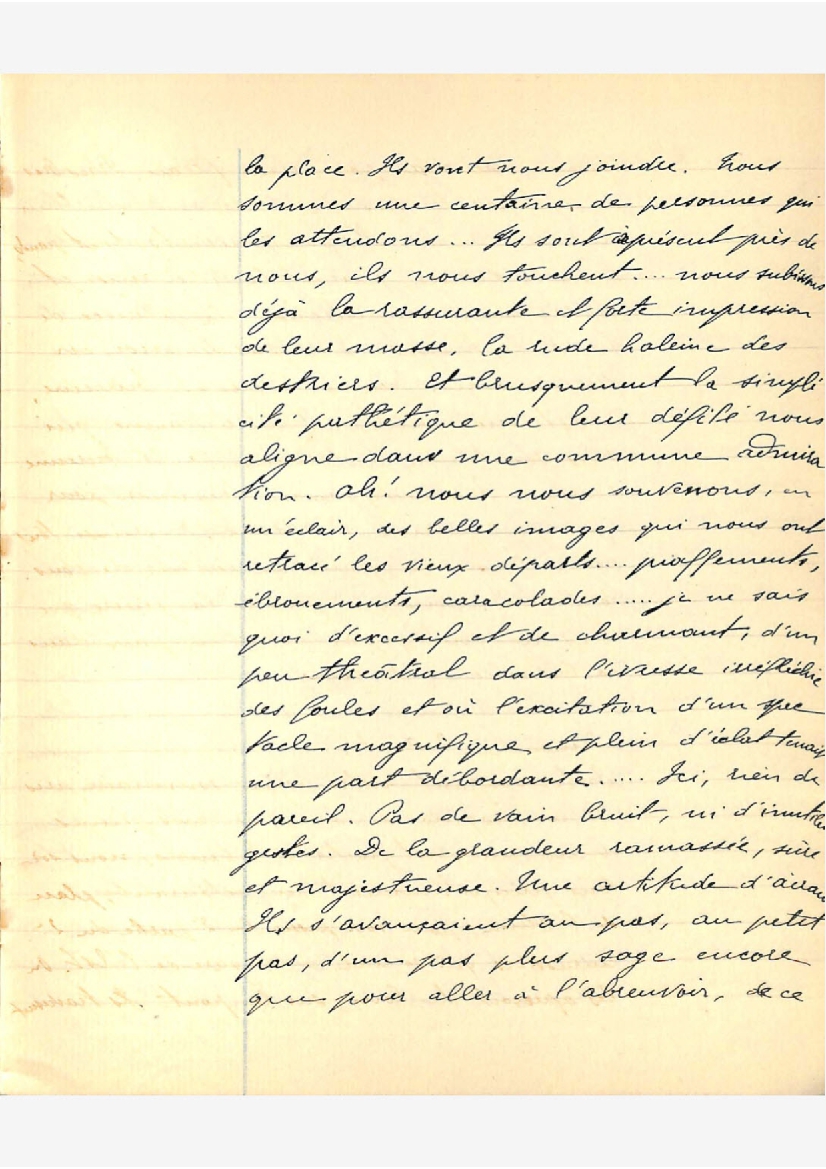 la place. Ils vont nous joindre. Nous
sommes une centaine de personnes qui
les attendons ... Ils sont àprésent près de
nous, ils nous touchent .... nous subissons
déjà la rassurante et forte impression
de leur masse, la rude haleine des
destriers. Et brusquement la simpli
cité pathétique de leur défilé nous
aligne dans une commune admira
tion. Ah! nous nous souvenons, en
un éclair, des belles images qui nous ont
retracé les vieux départs .... piaffements,
ébrouements, caracolades ..... je ne sais
quoi d'excessif et de charmant, d'un
peu théâtral dans l'ivresse irréfléchie
des foules et où l'excitation d'un spec
tacle magnifique et plein d'éclat tenait
une part débordante ..... Ici, rien de
pareil. Pas de vain bruit, ni d'inutiles
gestes. De la grandeur ramassée, sûre
et majestueuse. Une attitude d'airain
Ils s'avançaient au pas, au petit
pas, d'un pas plus sage encore
que pour aller à l'abreuvoir, de ce